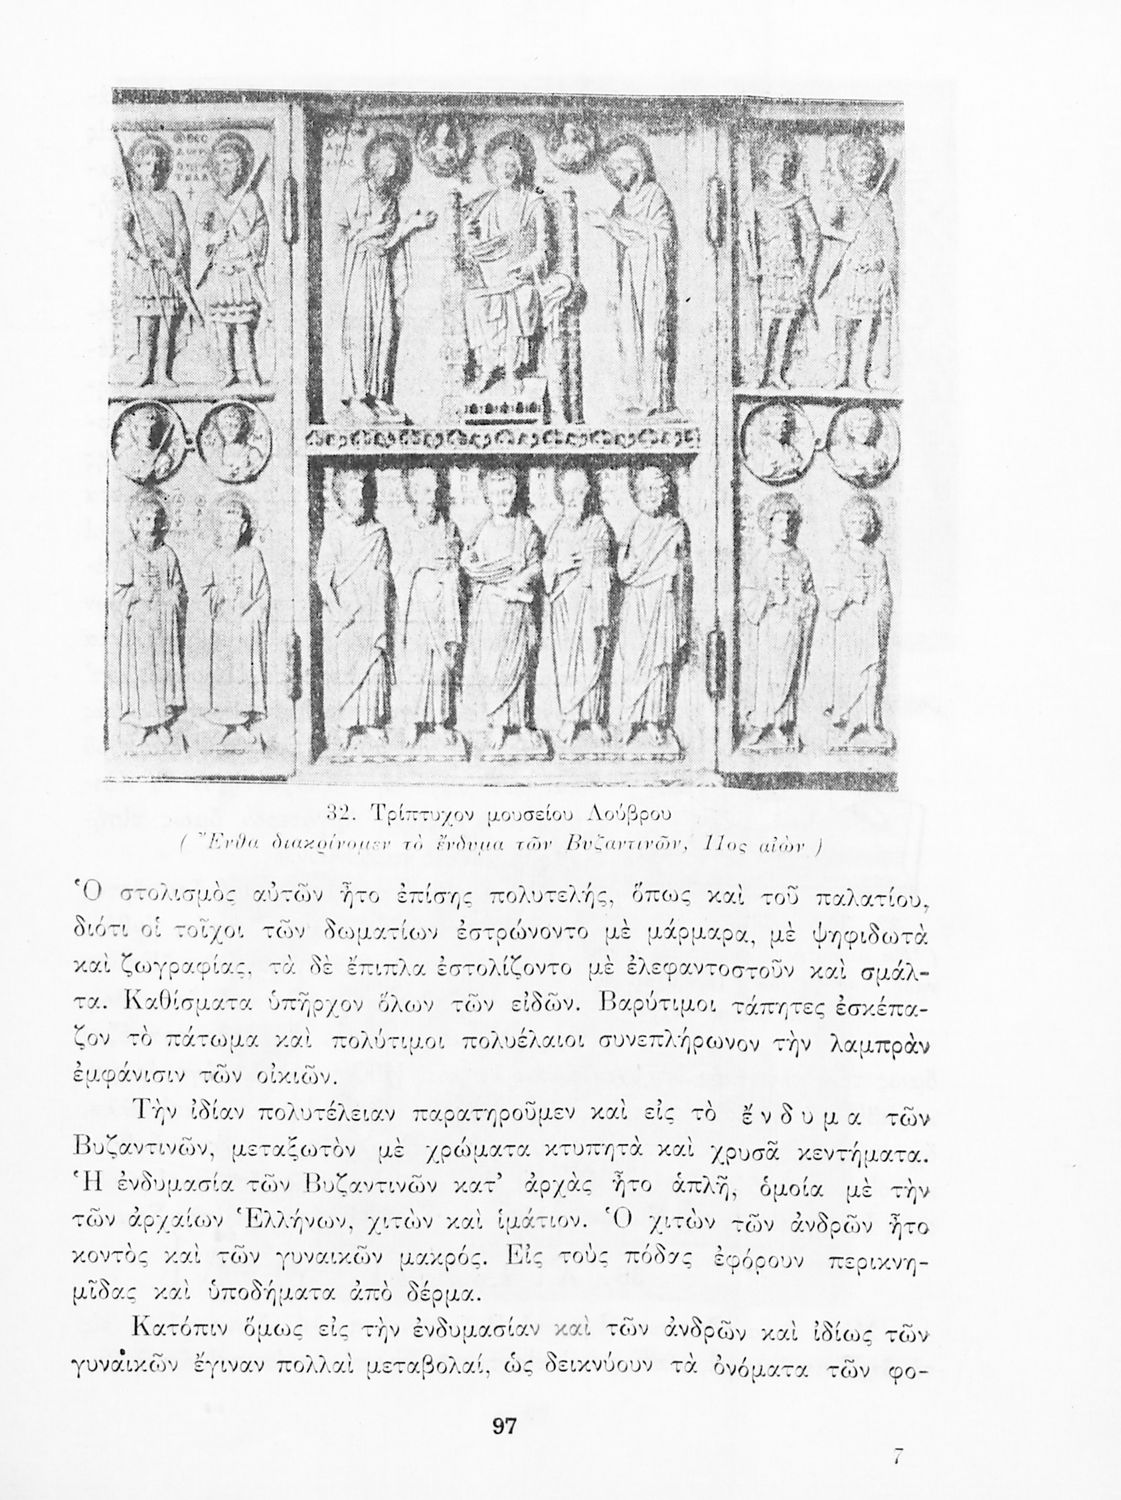 32. Τρίπτυχον μουσείου Λούβρου
( Ἔνθα διακρίνομεν τὸ ἔνδυμα τῶν Βυζαντινῶν, 11ος αἰὼν )
Ὁ στολισμὸς αὐτῶν ἦτο ἐπίσης πολυτελής, ὅπως καὶ τοῦ παλατίου,
διότι οἱ τοῖχοι τῶν δωματίων ἐστρώνοντο μὲ μάρμαρα, μὲ ψηφιδωτὰ
καὶ ζωγραφίας, τὰ δὲ ἔπιπλα ἐστολίζοντο μὲ ἐλεφαντοστοῦν καὶ σμάλ-
τα. Καθίσματα ὑπῆρχον ὅλων τῶν εἰδῶν. Βαρύτιμοι τάπητες ἐσκέπα-
ζον τὸ πάτωμα καὶ πολύτιμοι πολυέλαιοι συνεπλήρωνον τὴν λαμπρὰν
ἐμφάνισιν τῶν οἰκιῶν.
Τὴν ἰδίαν πολυτέλειαν παρατηροῦμεν καὶ εἰς τὸ ἔνδυμα τῶν
Βυζαντινῶν, μεταξωτὸν μὲ χρώματα κτυπητὰ καὶ χρυσᾶ κεντήματα.
Ἡ ἐνδυμασία τῶν Βυζαντινῶν κατ' ἀρχὰς ἦτο ἁπλῆ, ὁμοία μὲ τὴν
τῶν ἀρχαίων Ἑλλήνων, χιτὼν καὶ ἱμάτιον. Ὁ χιτὼν τῶν ἀνδρῶν ἦτο
κοντὸς καὶ τῶν γυναικῶν μακρός. Εἰς τοὺς πόδας ἐφόρουν περικνη-
μῖδας καὶ ὑποδήματα ἀπὸ δέρμα.
Κατόπιν ὅμως εἰς τὴν ἐνδυμασίαν καὶ τῶν ἀνδρῶν καὶ ἰδίως τῶν
γυναικῶν ἔγιναν πολλαὶ μεταβολαί, ὡς δεικνύουν τὰ ὀνόματα τῶν φο-
97
7